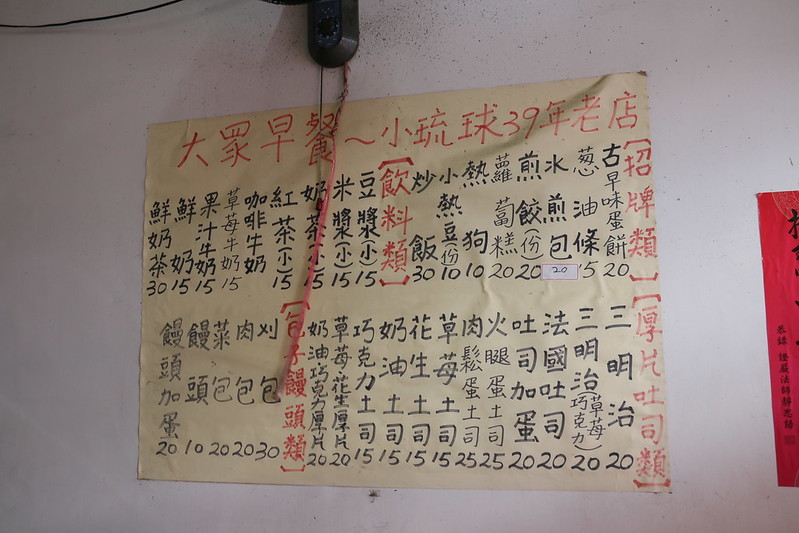 大眾早餐～小琉球39年老店
【招牌類】
古早味蛋餅20
葱油條15
水煎包20
煎餃(份)20
蘿蔔糕20
熱狗10
小熱豆(份)10
炒飯30
【飲料類】
豆漿(小)15
米漿(小)15
奶茶(小)15
紅茶(小)15
咖啡牛奶
草莓牛奶15
果汁牛奶15
鮮奶15
鮮奶茶30
【厚片吐司類】
三明治20
三明治(草莓巧克力)20
法國吐司20
吐司加蛋20
火腿蛋土司25
肉鬆蛋土司25
草莓土司15
花生土司15
奶油土司15
巧克力土司15
草莓花生厚片20
奶油巧克力厚片20
【包子饅頭類】
刈包30
肉包20
菜包20
饅頭10
饅頭加蛋20